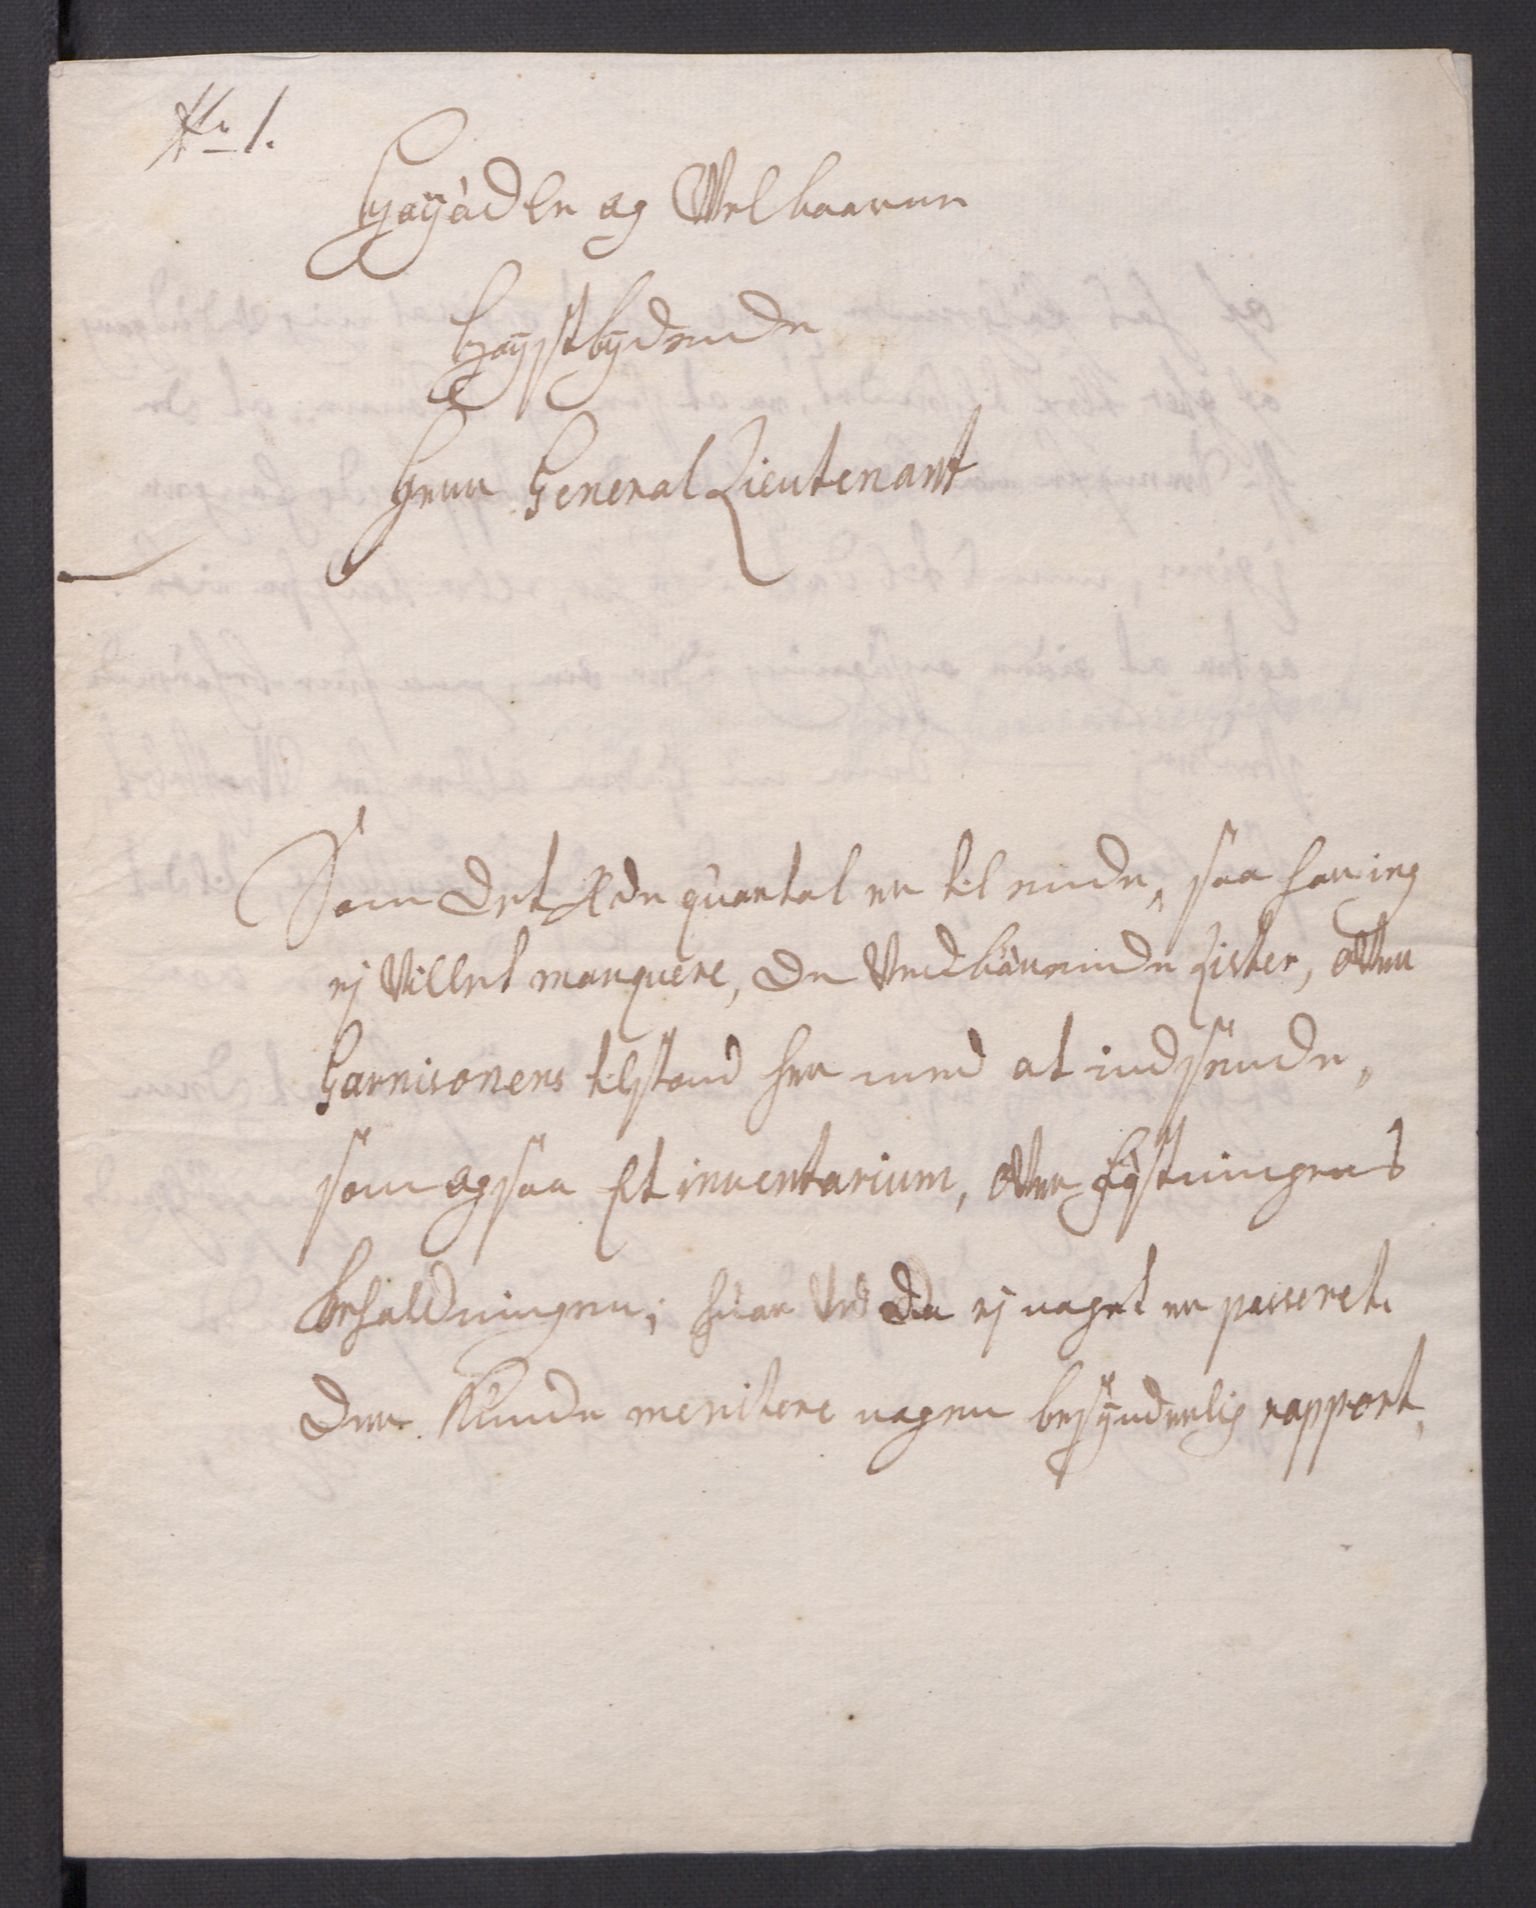 No 1.
Høyædle og Velbaarne
Høystbydende
Herr General Lieutenant
Som det 2de quartal er til ende, saa har ieg
ej Villet manquere, de Vedbørende Lister, over
Garnisonens tilstand her med at indsende,
som ogsaa Et inventarium, over Fæstningens
behaldningen; hvor Ved da ej noget er passeret
der Kunde meritere nogen besynderlig rapport,